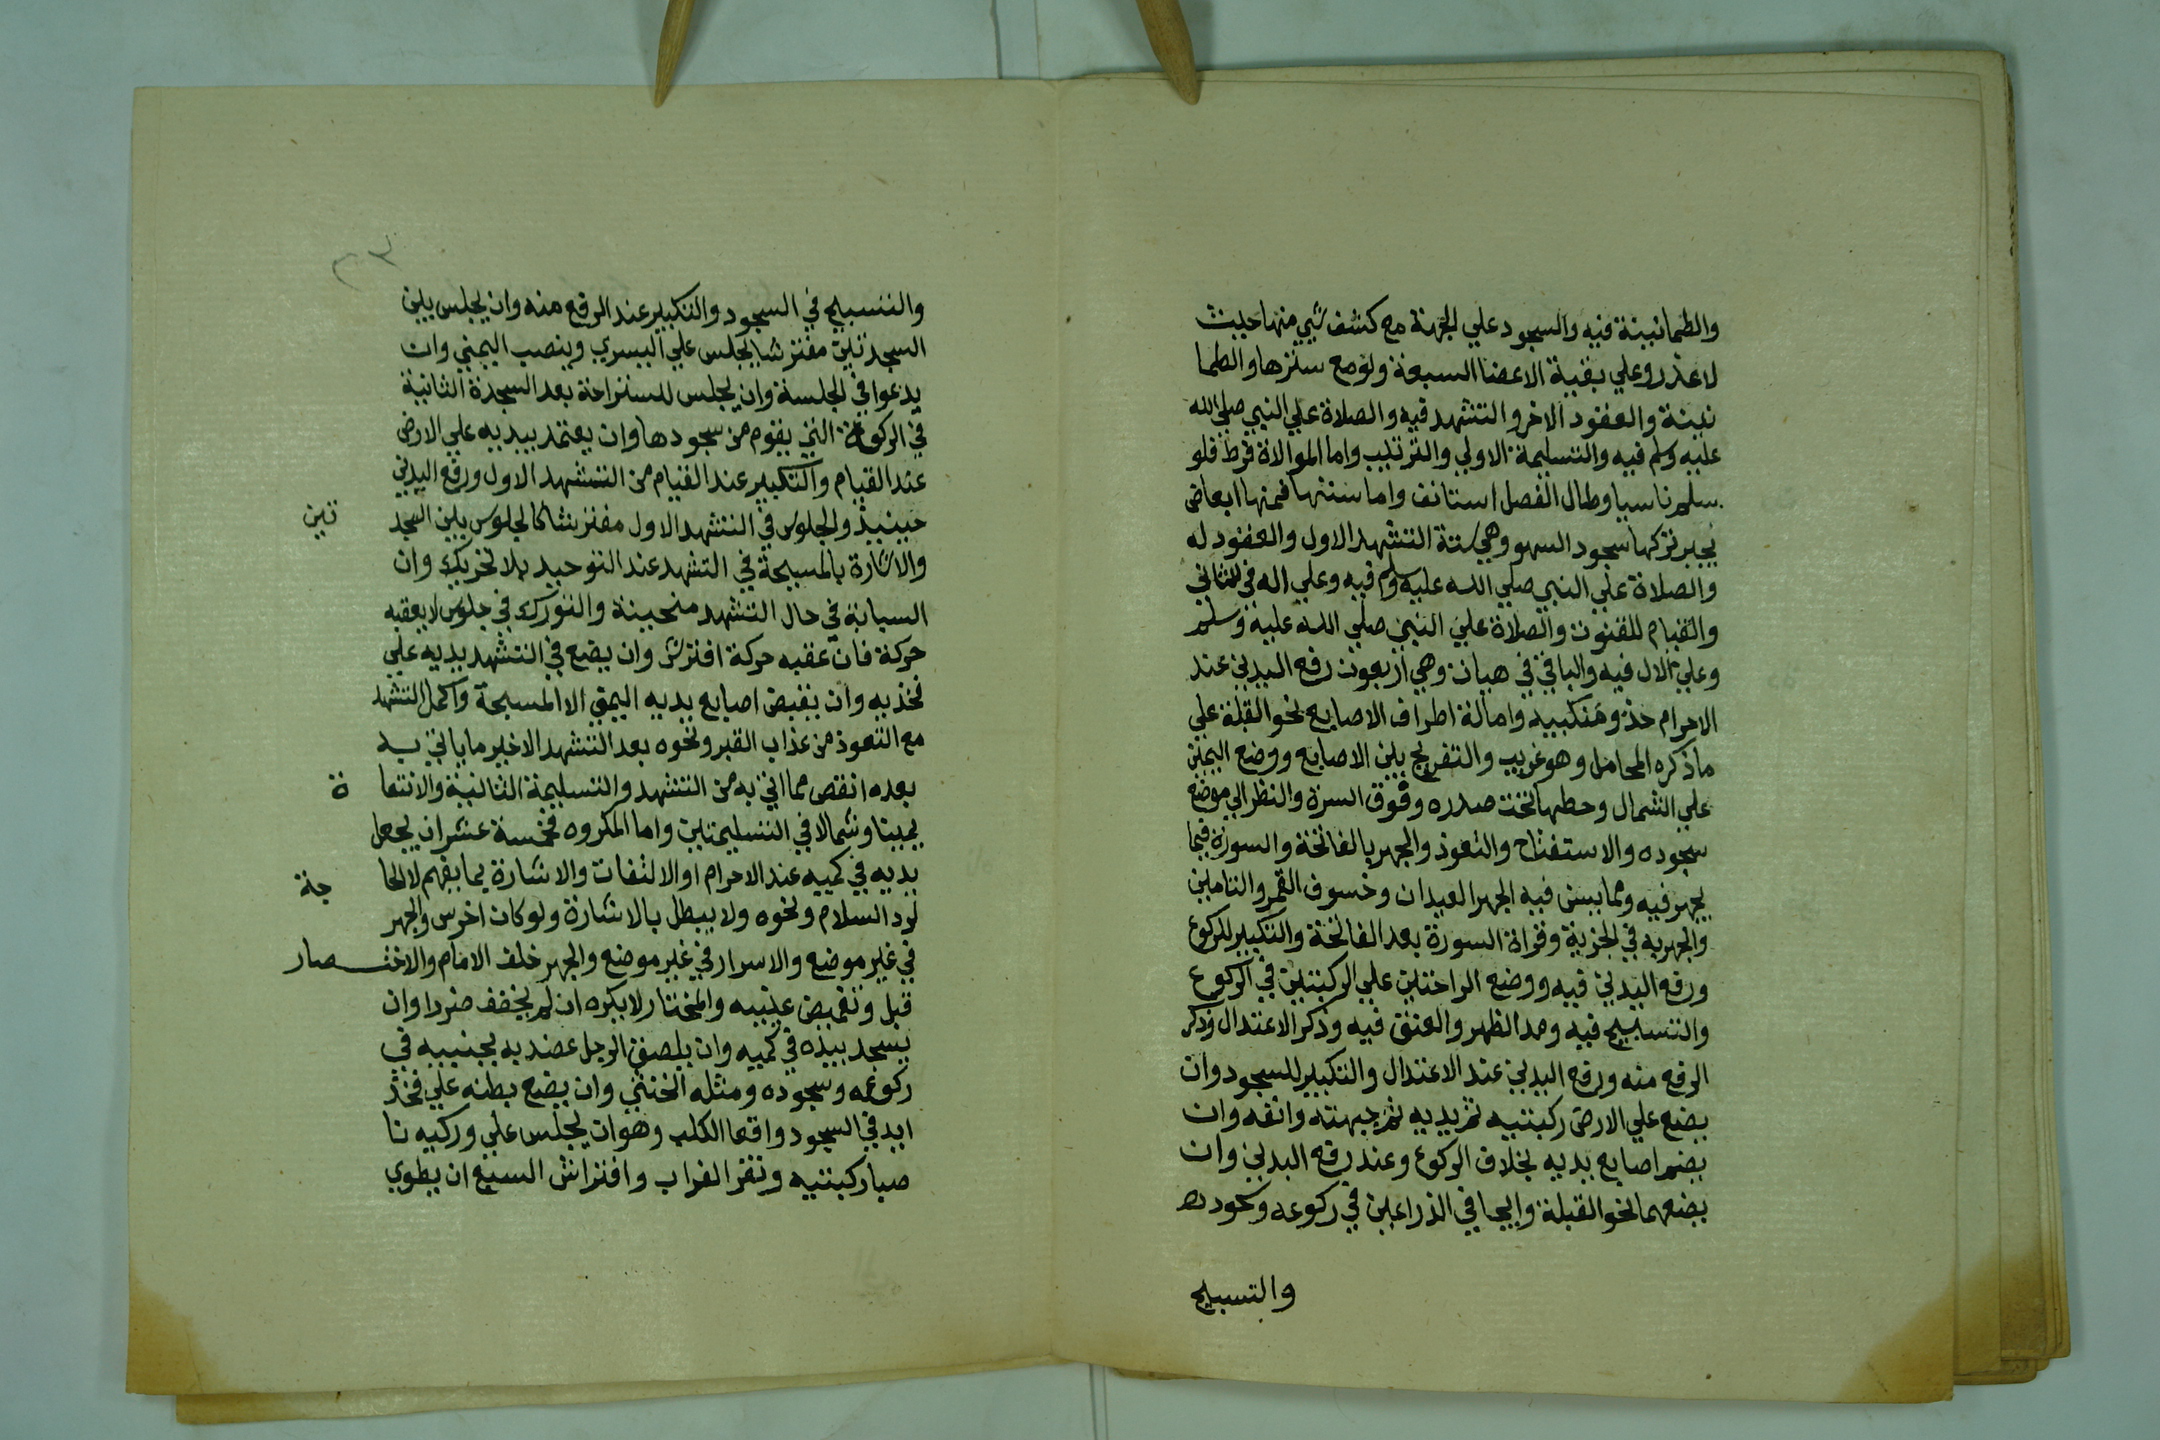 والطمانينة فيه والسجود علي الجبهة مع كشف شيي منها حيث
لا عذر وعلي بقية الاعضا السبعة ولو مع سترها والطما
نينة والعقود الاخر والتشهد فيه والصلاة علي النبي صلي الله
عليه وسلم فيه والتسليمة الاولي والترتيب واما الموالاة فرط فلو
سلم ناسيا وطال الفصل استانف واما سننها فمنها ابعاض
يجبر تركها سجود السهو وهي ستة التشهد الاول والعقود له
والصلاة علي النبي صلي الله عليه وسلم فيه وعلي اله في الثاني
والقيام للقنوت والصلاة علي النبي صلي الله عليه وسلم
وعلي الال فيه والباقي هيات وهي اربعون رفع اليدين عند
الاحرام حذو منكبيه وامالة اطراف الاصابع نحو القبلة علي
ما ذكره المحاملي وهو غريب والتفريج بين الاصابع ووضع اليمين
علي الشمال وحطهما تحت صدره وفوق السرة والنظر الي موضع
سجوده والاستفتاح والتعوذ والجهر بالفاتحة والسورة فيما
يجهر فيه ومما يسن فيه الجهر العيدان وخسوف القمر والتامين
والجهر به في الجزية وقراة السورة بعد الفاتحة والتكبير للركوع
ورفع اليدين فيه ووضع الراحتين علي الركبتين في الركوع
والتسبيح فيه ومد الظهر والعنق فيه وذكر الاعتدال وذكر
الرفع منه ورفع اليدين عند الاعتدال والتكبير للسجود وان
يضع علي الارض ركبتيه ثم يديه ثم جبهته وانفه وان
يضم اصابع يديه بخلاف الركوع وعند رفع اليدين وان
يضعهما نحو القبلة ويجافي الذراعين في ركوعه وسجوده
والتسبيح
٣٣
والتسبيح في السجود والتكبير عند الرفع منه وان يجلس بين
السجدتين مفترشا يجلس علي اليسري وينصب اليمني وان
يدعوا في الجلسة وان يجلس للستراحة بعد السجدة الثانية
في الركوعة التي يقوم من سجودها وان يعتمد بيديه علي الارض
عند القيام والتكبير عند القيام من التشهد الاول ورفع اليدين
حينيذ والجلوس في التشهد الاول مفترشا كالجلوس بين السجد تين
والاشارة بالمسبحة في التشهد عند التوحيد بلا تحريك وان
السبابة في حال التشهد منحنية والتورك في جلوس لا يعقبه
حركة فان عقبه حركة افترش وان يضع في التشهد يديه علي
فخذيه وان يقبض اصابع يديه اليمني الا المسبحة واكمل التشهد
مع التعوذ من عذاب القبر ونحوه بعد التشهد الاخير ما ياتي به
بعده انقص مما اتي به من التشهد والتسليمة الثانية والالتفا ة
يمينا وشمالا في التسليمتين واما المكروه فخمسة عشر ان يجعل
يديه في كميه عند الاحرام او الالتفات والاشارة بما يفهم لا لحا جة
لرد السلام ونحوه ولا يبطل بالاشارة ولو كان اخرس والجهر
في غير موضعه والاسرار في غير موضعه والجهر خلف الامام والاختصار
قبل وتغميض عينيه والمختار لا يكره ان لم يخفف ضررا وان
يسجد بيده في كميه وان يلصق الرجل عضديه بجنبيه في
ركوعه وسجوده ومثله الخنثي وان يضع بطنه علي فخذ
ايه في السجود واقعا الكلب وهو ان يجلس علي وركيه نا
صبا ركبتيه ونقر الغراب وافتراش السبع ان يطوي